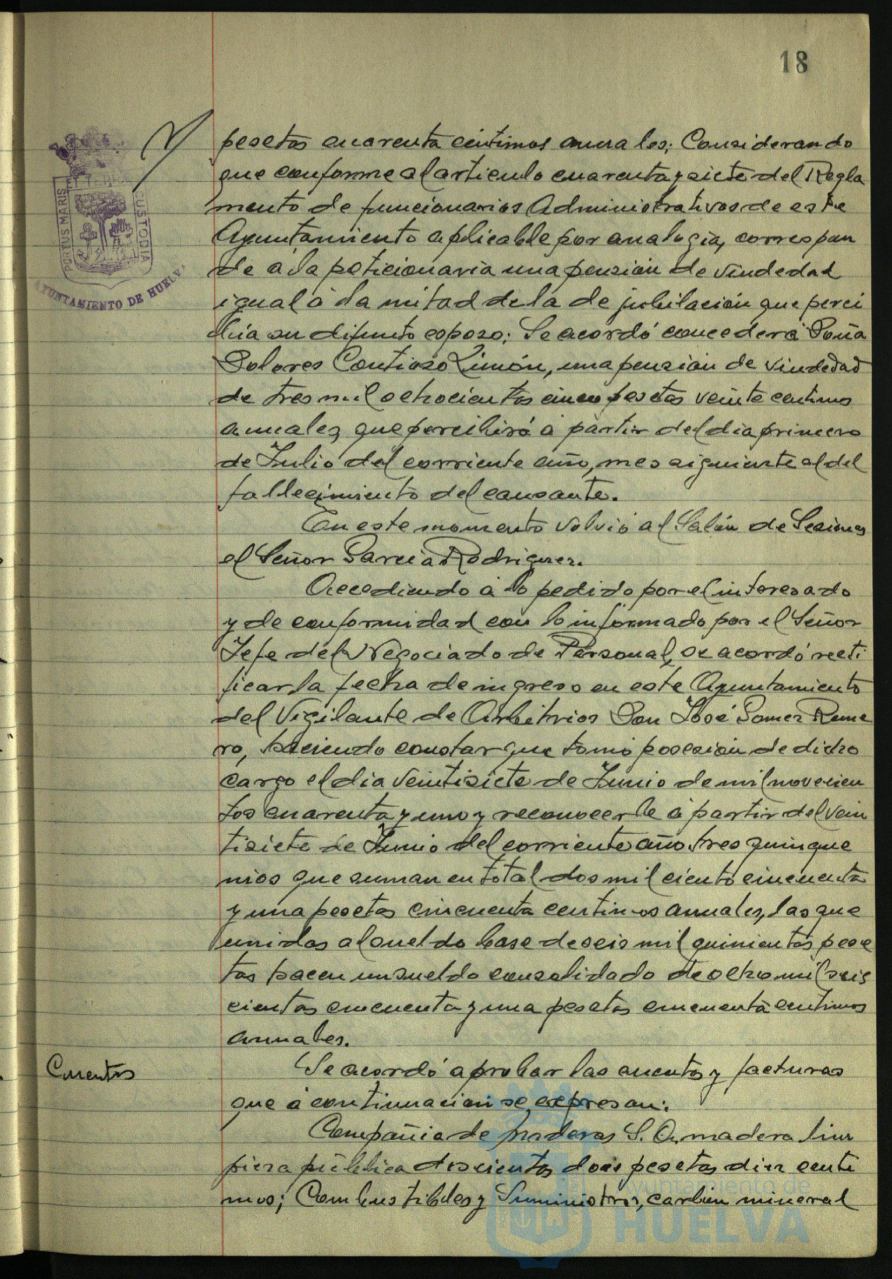 18
pesetas cuarenta centimos anuales; Considerando
que conforme al articulo cuarenta y siete del Regla
mento de funcionarios Administrativos de este
Ayuntamiento aplicable por analogia, correspon
de á la peticionaria una pension de viudedad
igual á la mitad de la de jubilación que perci
bia su difunto esposo; Se acordó conceder á Doña
Dolores Contioso Limón, una pension de viudedad
de tres mil ochocientas cinco pesetas veinte centimos
anuales, que percibirá á partir del dia primero
de Julio del corriente año, mes siguiente al del
fallecimiento del causante.
En este momento volvió al Salón de Sesiones
el Señor Garcia Rodriguez.
Accediendo á lo pedido por el interesado
y de conformidad con lo informado por el Señor
Jefe del Negociado de Personal, se acordó recti
ficar la fecha de ingreso en este Ayuntamiento
del Vigilante de Arbitrios Don José Gomez Rome
ro, haciendo constar que tomó posesion de dicho
cargo el dia veintisiete de Junio de mil novecien
tos cuarenta y uno y reconocerle á partir del vein
tisiete de Junio del corriente año, tres quinque
nios que suman en total dos mil ciento cincuenta
y una pesetas cincuenta centimos anuales, las que
unidas al sueldo base de seis mil quinientas pese
tas hacen un sueldo consolidado de ocho mil seis
cientas cincuenta y una pesetas cincuenta centimos
anuales.
Cuentas
Se acordó aprobar las cuentas y facturas
que á continuacion se expresan:
Compañia de Maderas S.A. madera lim
pieza pública doscientas dos pesetas diez centi
mos; Combustibles y Suministros, carbon mineral
PORTUS MARIS
CUSTODIA
AYUNTAMIENTO DE HUELVA
Ayuntamiento de
HUELVA